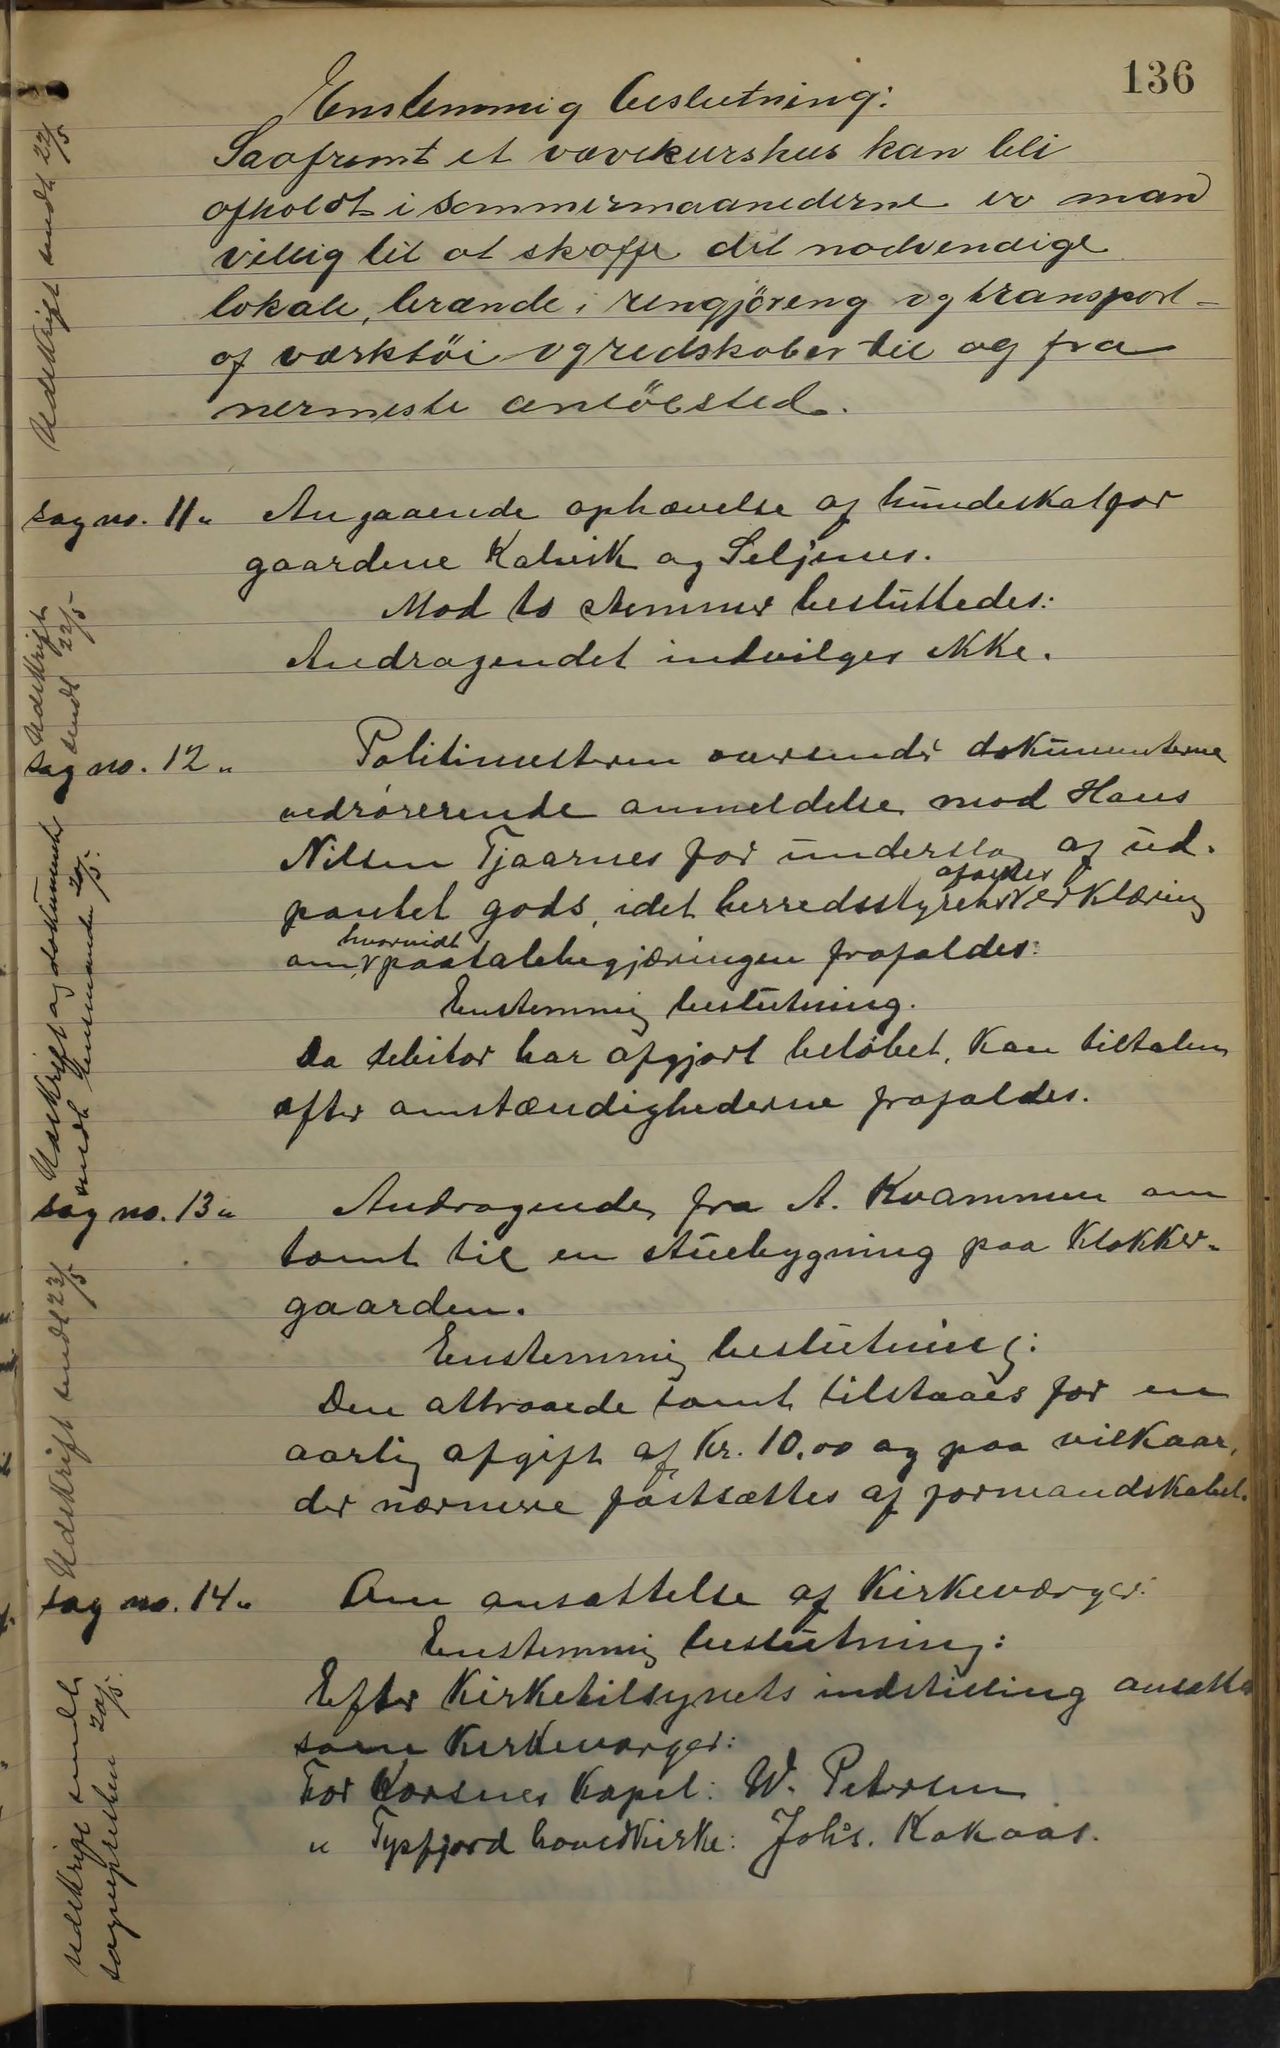 136
Enstemmig beslutning:
Saafremt et vævekurshus kan bli
afholdt i sommermaanederne er man
villig til at skaffe det nødvendige
lokale, brænde, rengjöreng og transport
af værktöi og redskaber til og fra
nermeste anlöbsted.
Udskrift sendt 22/5
sag no. 11.
Angaaende ophævelse af hundeskat for
gaardene Kalvik og Seljenes.
Mod to stemmer besluttedes:
Andragendet indvilges ikke.
Udskrift
sendt 22/5
sag no. 12.
Politimesteren oversender dokumenterne
vedrörerende anmeldelse mod Hans
Nilsen Tjaarnes for underslag af ud-
pantet gods, idet herredsstyrets erklæring
afæskes
om paatalebegjæringen frafaldes:
hvorvidt
Enstemmig beslutning.
Da debitor har afgjort belöbet, kan tiltalen
efter omstændighederne frafaldes.
Udskrift og dokumenter
sendt lensmanden 20/5.
sag no. 13.
Andragende fra A. Kvammen om
tomt til en stuebygning paa Klokker-
gaarden.
Enstemmig beslutning:
Den attraaede tomt tilstaaes for en
aarlig afgift af Kr. 10.00 og paa vilkaar,
der nærmere fastsættes af formandskabet.
Udskrift sendt 23/5
sag no. 14.
Om ansættelse af Kirkeværger.
Enstemmig beslutning:
Efter Kirketilsynets indstilling ansættes
som Kirkeværger:
For Korsnes Kapel: W. Petersen
" Tysfjord hovedkirke: Johs. Kakaas.
Udskrift sendt
sognepresten 20/5.